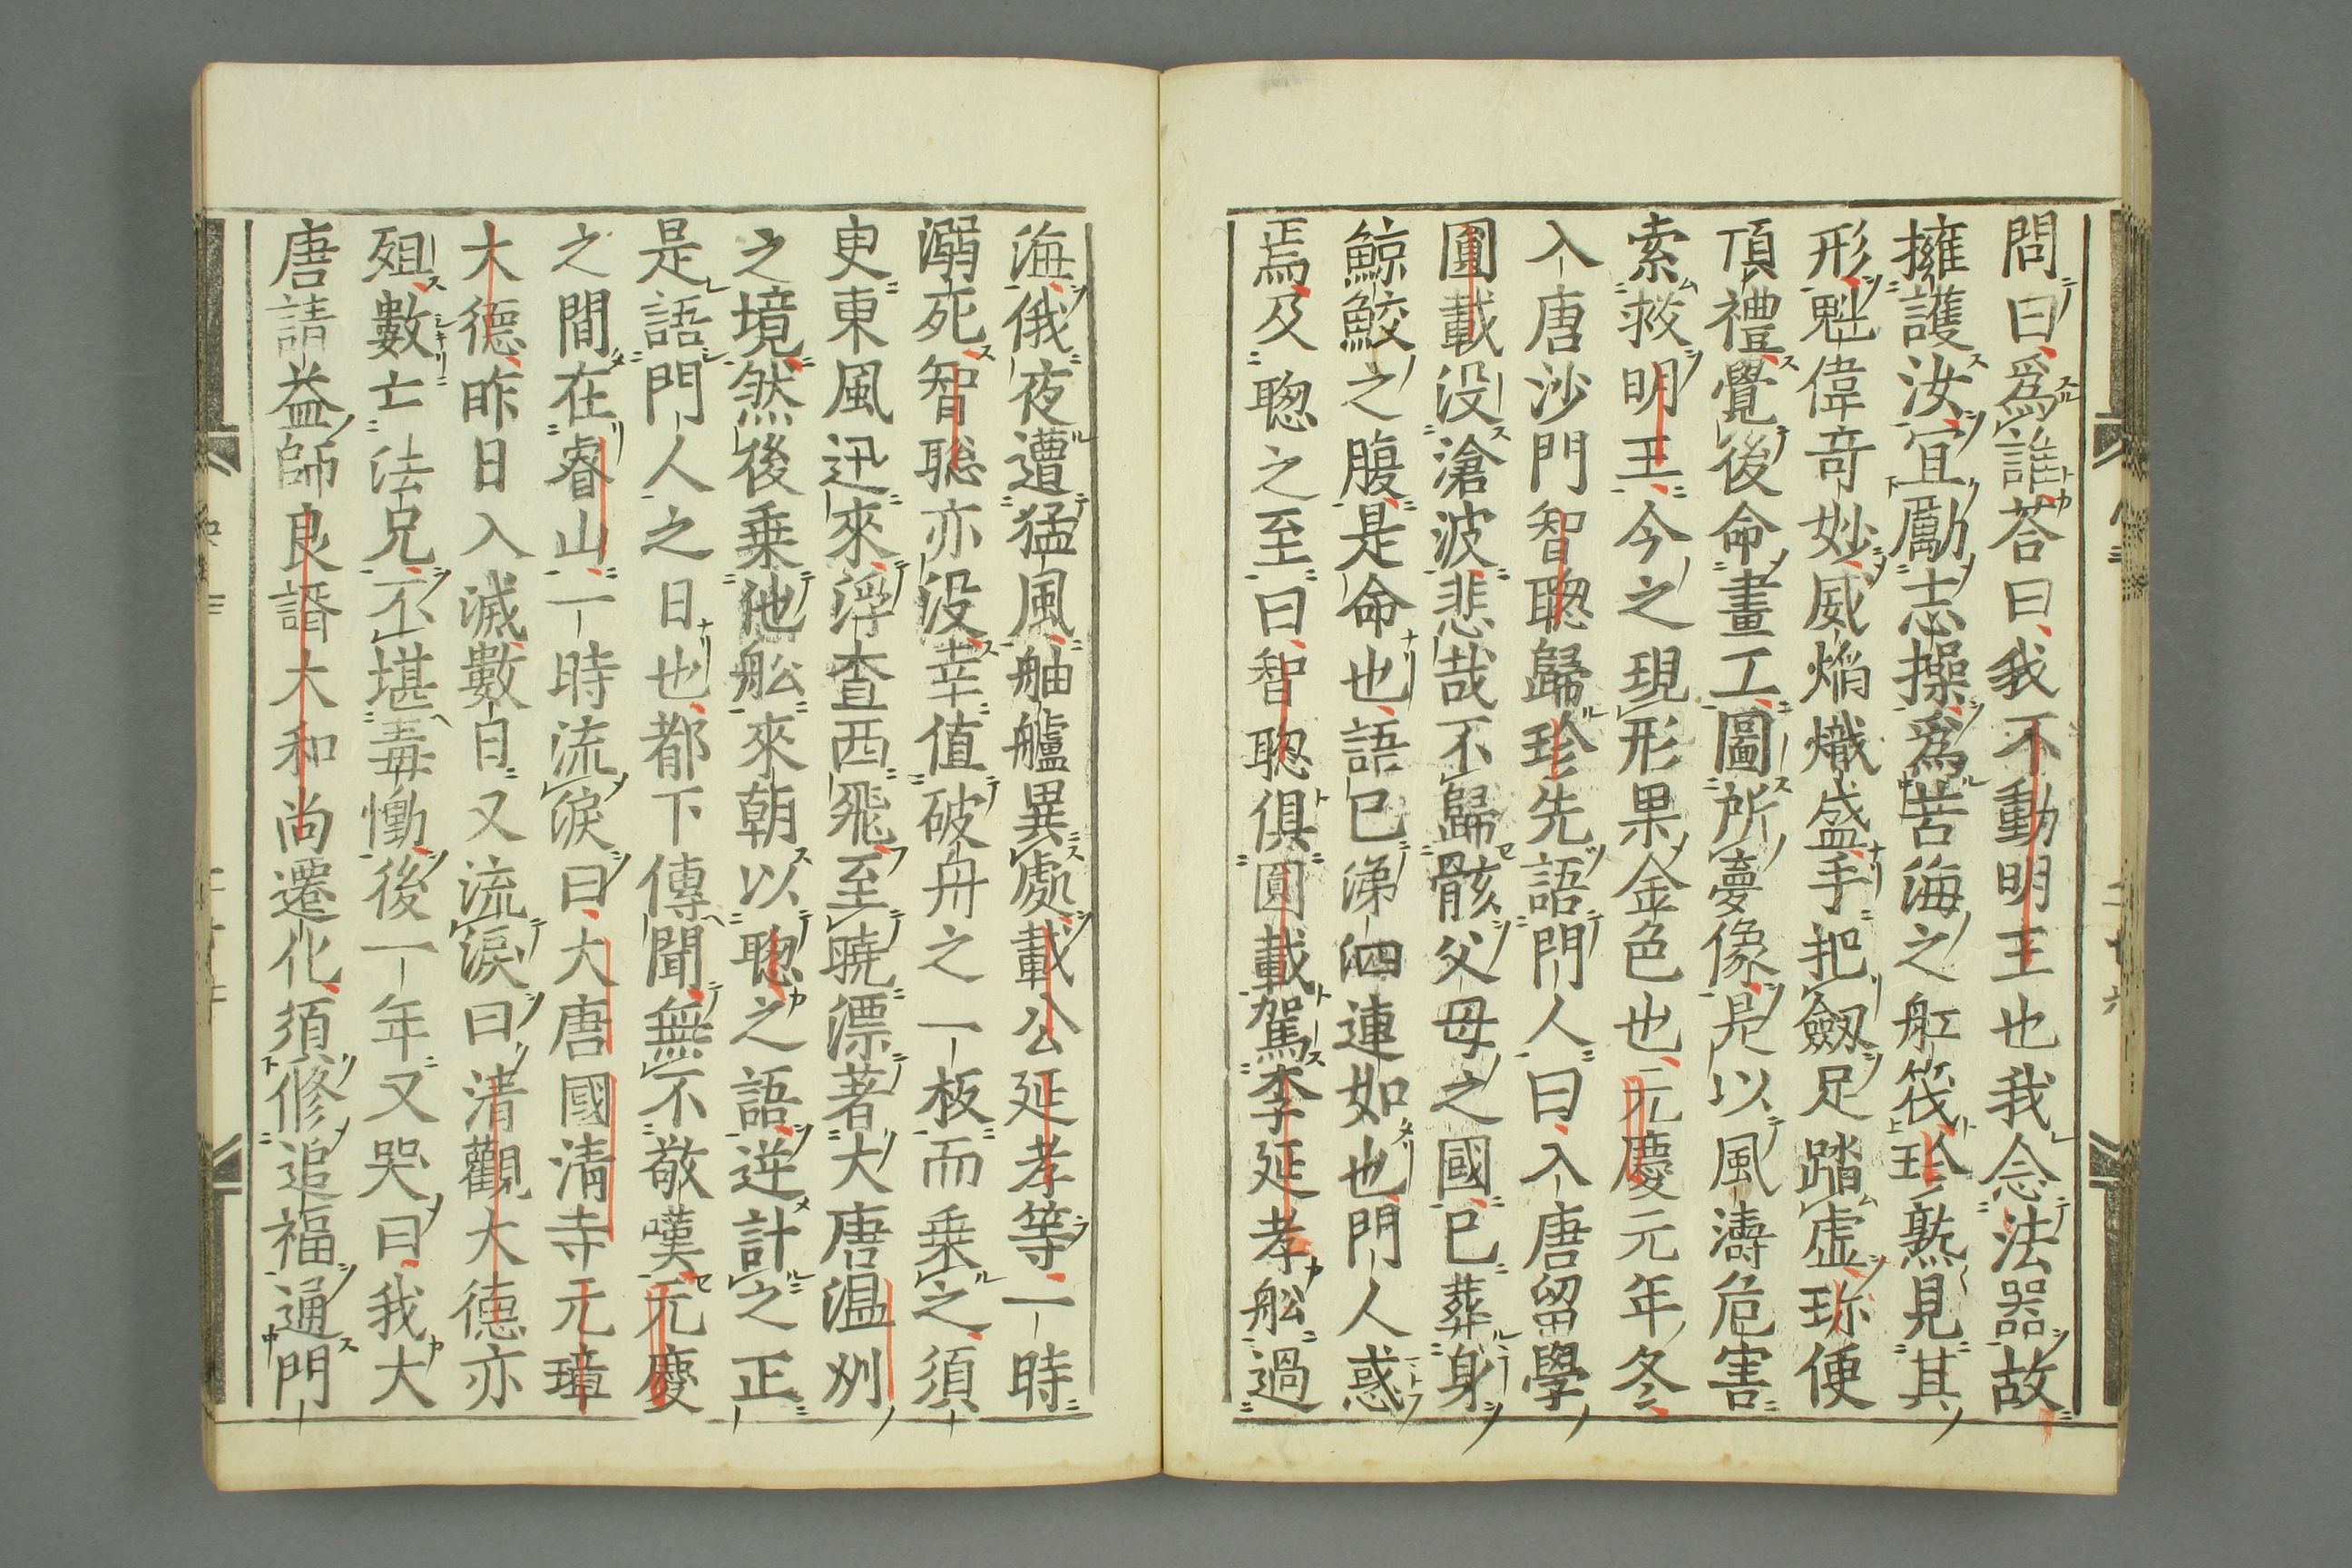 問曰爲誰荅曰我不動明王也我念法器故
擁護汝宜勵志操爲苦海之舡筏珍熟見其
形魁偉奇妙威焔熾盛手把劔足踏虚珎便
頂禮覺後命畫工圖所夢像是以風濤危害
索救明王今之現形果金色也元慶元年冬
入唐沙門智聰歸珍先語門人曰入唐留學
圓載没滄波悲哉不歸骸父母之國已葬身
鯨鮫之腹是命也語已涕泗連如也門人惑
焉及聰之至曰智聰俱圓載駕李延孝舩過
海俄夜遭猛風舳艫異處載公延孝等一時
溺死智聡亦没幸值破舟之一板而乗之須
㕝東風迅來浮査西飛至暁漂著大唐温州
之境然後乗他舩來朝以聰之語逆計之正
是語門人之日也都下傳聞無不敬嘆元慶
之間在睿山一時流淚曰大唐國清寺元璋
大德昨日入滅數日又流淚曰清觀大德亦
殂數亡法兄不堪毒慟後一年又哭曰我大
唐請益師良諝大和尚遷化須修追福通門